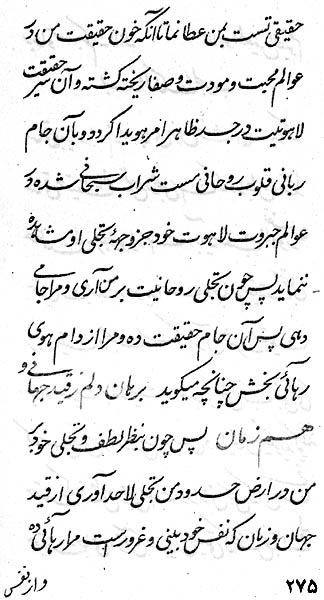 حقیقی تست بمن عطا نما تا آنکه خون حقیقت من در
عوالم محبت و مودت و صفا ریخته گشته و آن سیر حقیقت
لاهوتیت در جسد ظاهرام هویدا کردد و بآن جام
ربانی قلوب روحانی ست شراب سبحانی شده در
عوالم جبروت لاهوت خود جز وجهه تجلی او مشاهده
ننماید پس چون تجلی روحانیت بر من آری و مرا جامی
دهی پس آن جام حقیقت ده و مرا از دام هوی
رهائی بخش چنانچه میکوید برهان دلم ز قید جهانی و
هم زمان پس چون بنظر لطف و تجلی خود بر
من در ارض حدود من تجلی لاحد آوری از قید
جهان و زمان که نفس خود بینی و غرور است مرا رهائی ده
۲۷۵
و از نفس